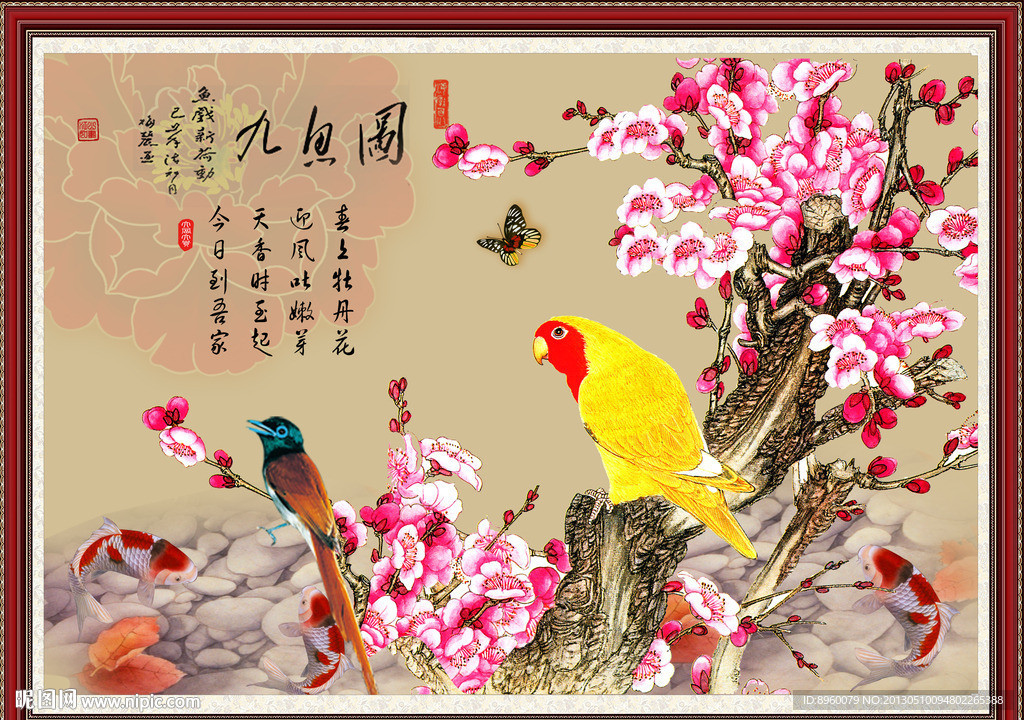 九鱼圖
魚戲新荷動
春上牡丹花
迎风吐嫩芽
天香时至起
今日到吾家
昵图网 www.nipic.com
ID:8960079 NO:20130510094802265388